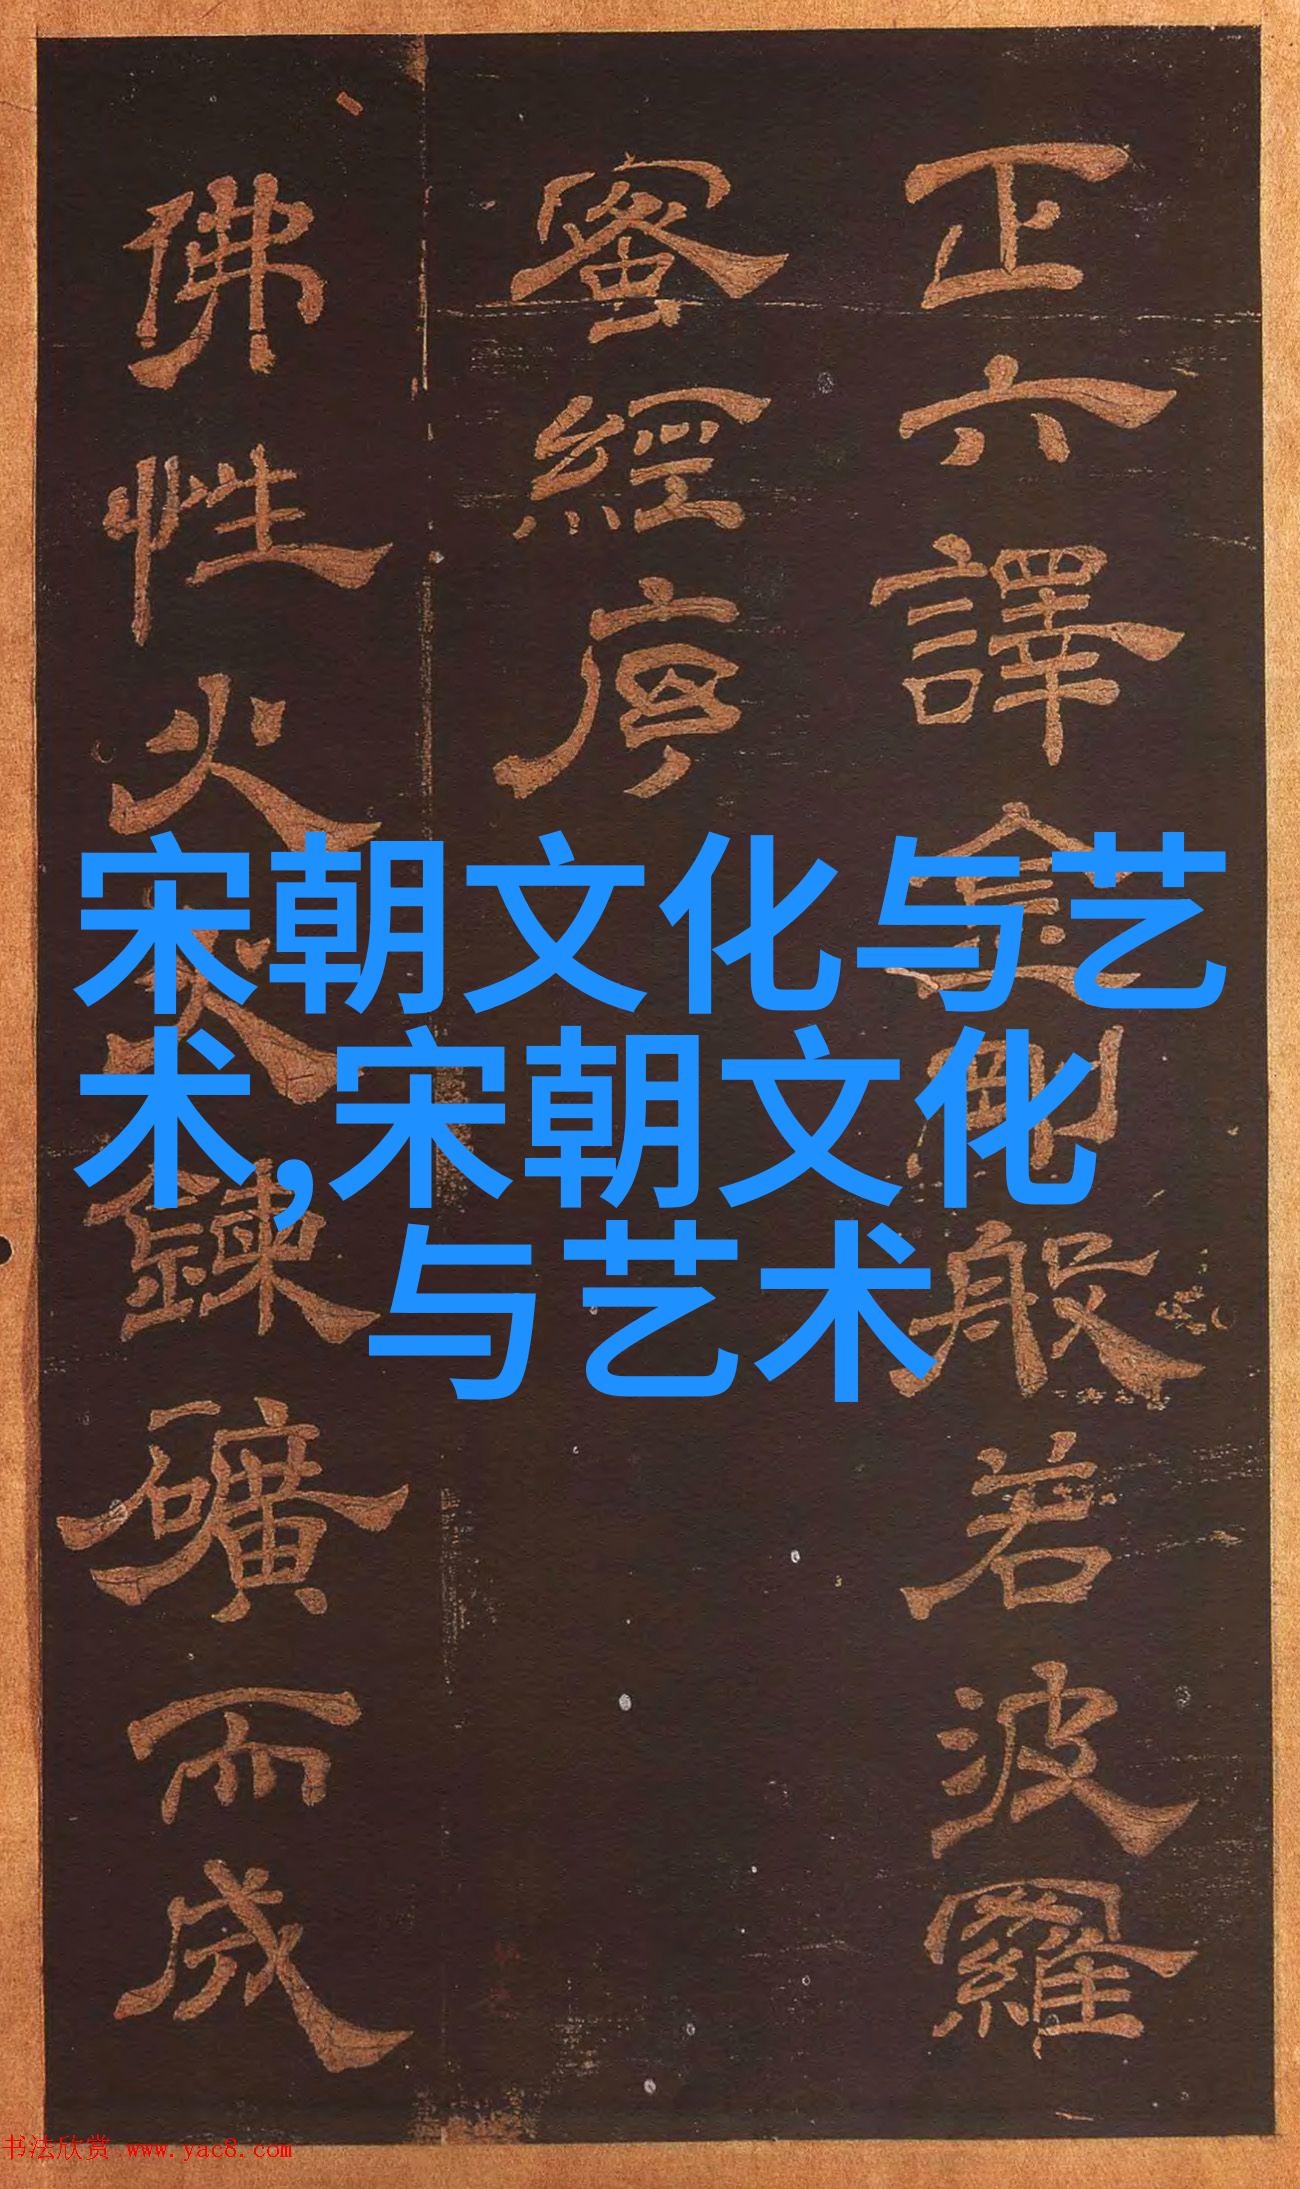 正六譯金剛般若波羅
蜜經序
佛性火鍊礦而成
宋朝文化与艺
术,宋朝文化
与艺术
书法欣赏 www.yac8.com